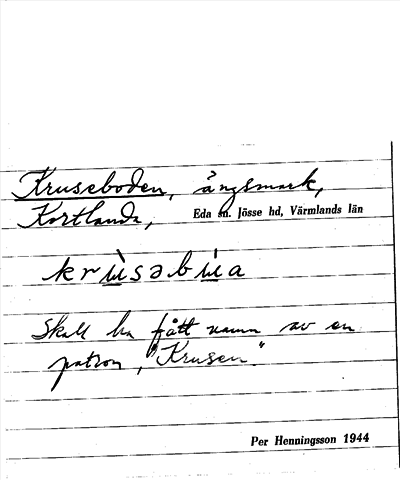 Kruseboden, ängsmark,
Kortlanda, Eda sn. Jösse hd, Värmlands län
krùsəbùa
Skall ha fått namn av en
patron, "Krusen".
Per Henningsson 1944